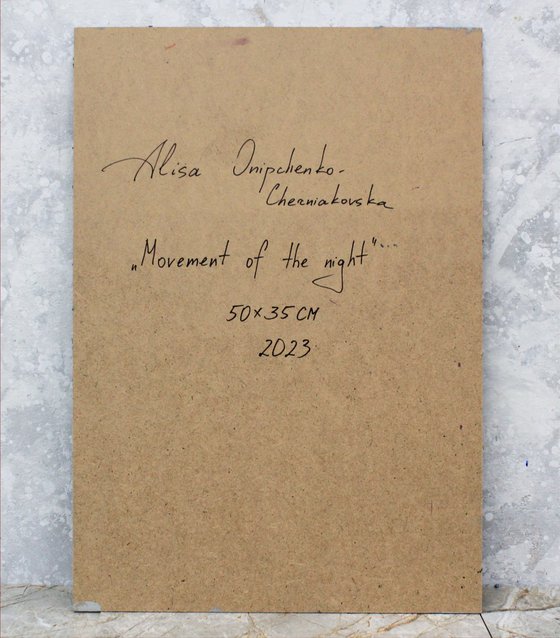 Alisa Onipchenko-
Cherniakovska
„Movement of the night"...
50x35 CM
2023